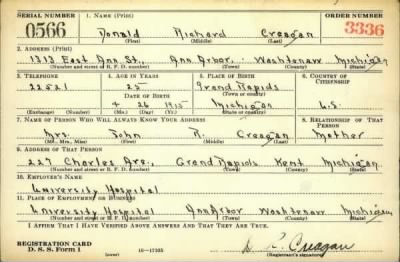 SERIAL NUMBER 1. NAME (Print) ORDER NUMBER
0566 Donald Richard Creagan 3336
(First) (Middle) (Last)
2. ADDRESS (Print)
1313 East Ann St., Ann Arbor, Washtenaw Michigan
(Number and street or R. F. D. number) (Town) (County) (State)
3. TELEPHONE 4. AGE IN YEARS 5. PLACE OF BIRTH 6. COUNTRY OF CITIZENSHIP
22521 25 Grand Rapids
DATE OF BIRTH (Town or county)
4 26 1915 Michigan U.S.
(Exchange) (Number) (Mo.) (Day) (Yr.) (State or country)
7. NAME OF PERSON WHO WILL ALWAYS KNOW YOUR ADDRESS 8. RELATIONSHIP OF THAT PERSON
Mrs. John R. Creagan Mother
(Mr., Mrs., Miss) (First) (Middle) (Last)
9. ADDRESS OF THAT PERSON
227 Charles Ave., Grand Rapids Kent Michigan
(Number and street or R. F. D. number) (Town) (County) (State)
10. EMPLOYER'S NAME
University Hospital
11. PLACE OF EMPLOYMENT OR BUSINESS
University Hospital Ann Arbor Washtenaw Michigan
(Number and street or R. F. D. number) (Town) (County) (State)
I AFFIRM THAT I HAVE VERIFIED ABOVE ANSWERS AND THAT THEY ARE TRUE.
REGISTRATION CARD
D. S. S. Form 1 16—17105 R. Creagan
(over) (Registrant's signature)